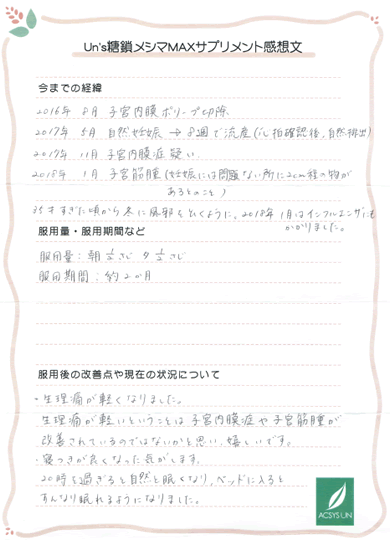 Un's糖鎖メシマMAXサプリメント感想文
今までの経緯
2016年 8月 子宮内膜ポリープ切除
2017年 5月 自然妊娠 → 8週で流産(心拍確認後、自然排出)
2017年 11月 子宮内膜症疑い
2018年 1月 子宮筋腫(妊娠には問題ない所に2cm程の物が
あるとのこと)
35才すぎた頃から冬に風邪をひくように。2018年 1月はインフルエンザにも
かかりました。
服用量・服用期間など
服用量: 朝½さじ 夕½さじ
服用期間: 約2か月
服用後の改善点や現在の状況について
・生理痛が軽くなりました。
生理痛が軽いということは子宮内膜症や子宮筋腫が
改善されているのではないかと思い、嬉しいです。
・寝つきが良くなった気がします。
20時を過ぎると自然と眠くなり、ベッドに入ると
すんなり眠れるようになりました。
ACSYS UN